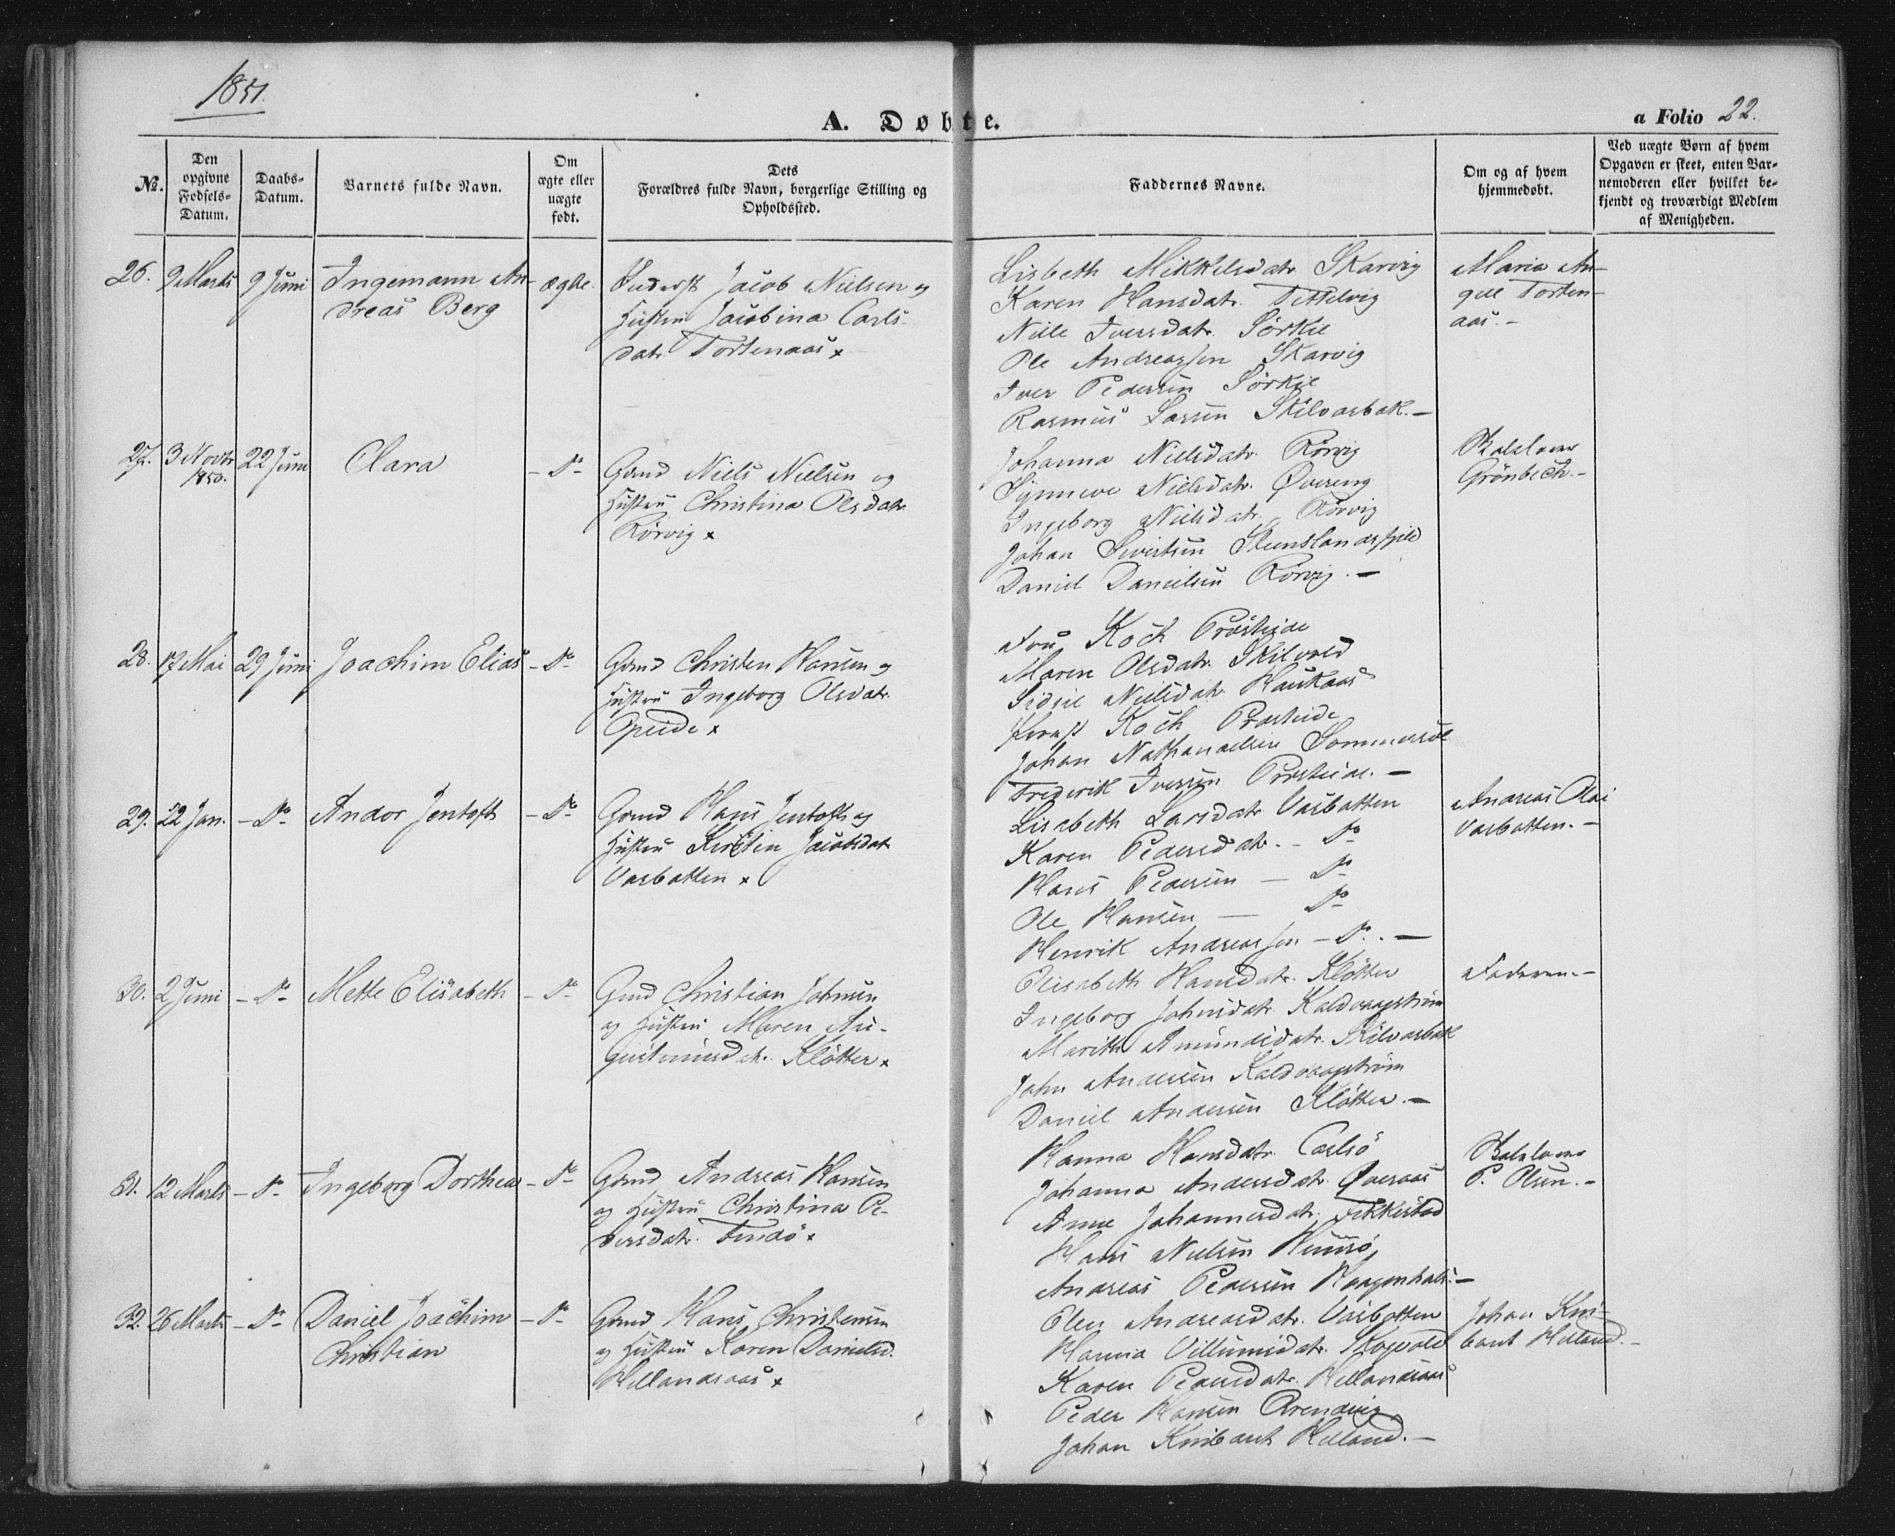 1851.
A. Døbte.
a Folio 22.
No.
Den opgivne Fødsels-Datum.
Daabs-Datum.
Barnets fulde Navn.
Om ægte eller uægte født.
Dets Forældres fulde Navn, borgerlige Stilling og Opholdssted.
Faddernes Navne.
Om og af hvem hjemmedøbt.
Ved uægte Børn af hvem Opgaven er skeet, enten Barnemoderen eller hvilket bekjendt og troværdigt Medlem af Menigheden.
26. 9 Marts 9 Juni Ingemann An-
dreas Berg
ægte.
Jacob Nielsen og
Hustru Jacobina Carls-
datr. Tortenaas x
Lisbeth Mikkelsdatr Skarvig
Karen Hansdatr. Tettelvig
Nille Iversdatr. Sørkil
Ole Andreassen Skarvig
Iver Pedersen Sørkil
Rasmus Larsen Skilvasbak. –
Maria An-
gel Torten-
aas. –
27. 3 Novbr 1850. 22 Juni Clara
– Do –
Gbmd Niels Nielsen og
Hustru Christina Olsdatr
Rørvig x
Johanna Nielsdatr. Rørvig
Synneve Nielsdatr. Øvereng
Ingeborg Nielsdatr. Rørvig
Johan Sivertsen
Daniel Danielsen Rørvig. –
Skolelærer
Grönbech. –
28. 17 Mai 29 Juni Joachim Elias
– Do
Gbmd Christen Hansen og
Hustru Ingeborg Olsdatr.
Opeide x
Fru Koch Præsteide
Maren Olsdatr. Skilvold
Sidsil Nielsdatr. Haukaas
Koch Præsteide
Johan Nathanaelsen Sommersel
Frederik Iversen Præsteide. –
29. 22 Jan. – Do – Andor Jentoft
– Do
Gbmd Hans Jentoft og
Hustru Kirstin Jacobsdatr
Vasbotten x
Lisabeth Larsdatr Vasbotten
Karen Pedersdatr. – Do
Hans Pedersen – Do
Ole Hansen – Do
Henrik Andreassen – Do. –
Andreas Olai
Vasbotten. –
30. 2 Juni – Do – Mette Elisabeth
– Do
Gmd Christian Johnsen
og Hustru Maren Au-
gustinusdatr. Kløtten x
Elisabeth Hansdatr. Kløtten
Ingeborg Johnsdatr. Kaldvaagstrøm
Marith Amundsdatr. Skilvasbak
John Andersen Kaldvaagstrøm
Daniel Andersen Kløtten. –
Faderen. –
31. 12 Marts – Do – Ingeborg Dorthea
– Do
Gbmd Andreas Hansen
og Hustru Christina Pe-
dersdatr. Findö x
Hanna Hansdatr. Carlsö
Johanna Andersdatr. Øveraas
Anne Johannesdatr.
Hans Nielsen
Andreas Pedersen Haagenhals. –
Skolelærer
P. Olsen. –
32. 26 Marts – Do – Daniel Joachim
Christian
– Do
Gbmd Hans Christensen
og Hustru Karen Danielsd.
Hellandsaas x
Elen Andreasdatr. Vasbotten
Hanna Villumsdatr. Skogvold
Karen Pedersdatr. Hellandsaas
Peder Hansen
Johan Knibant Helland. –
Johan Kni-
bant Helland. –